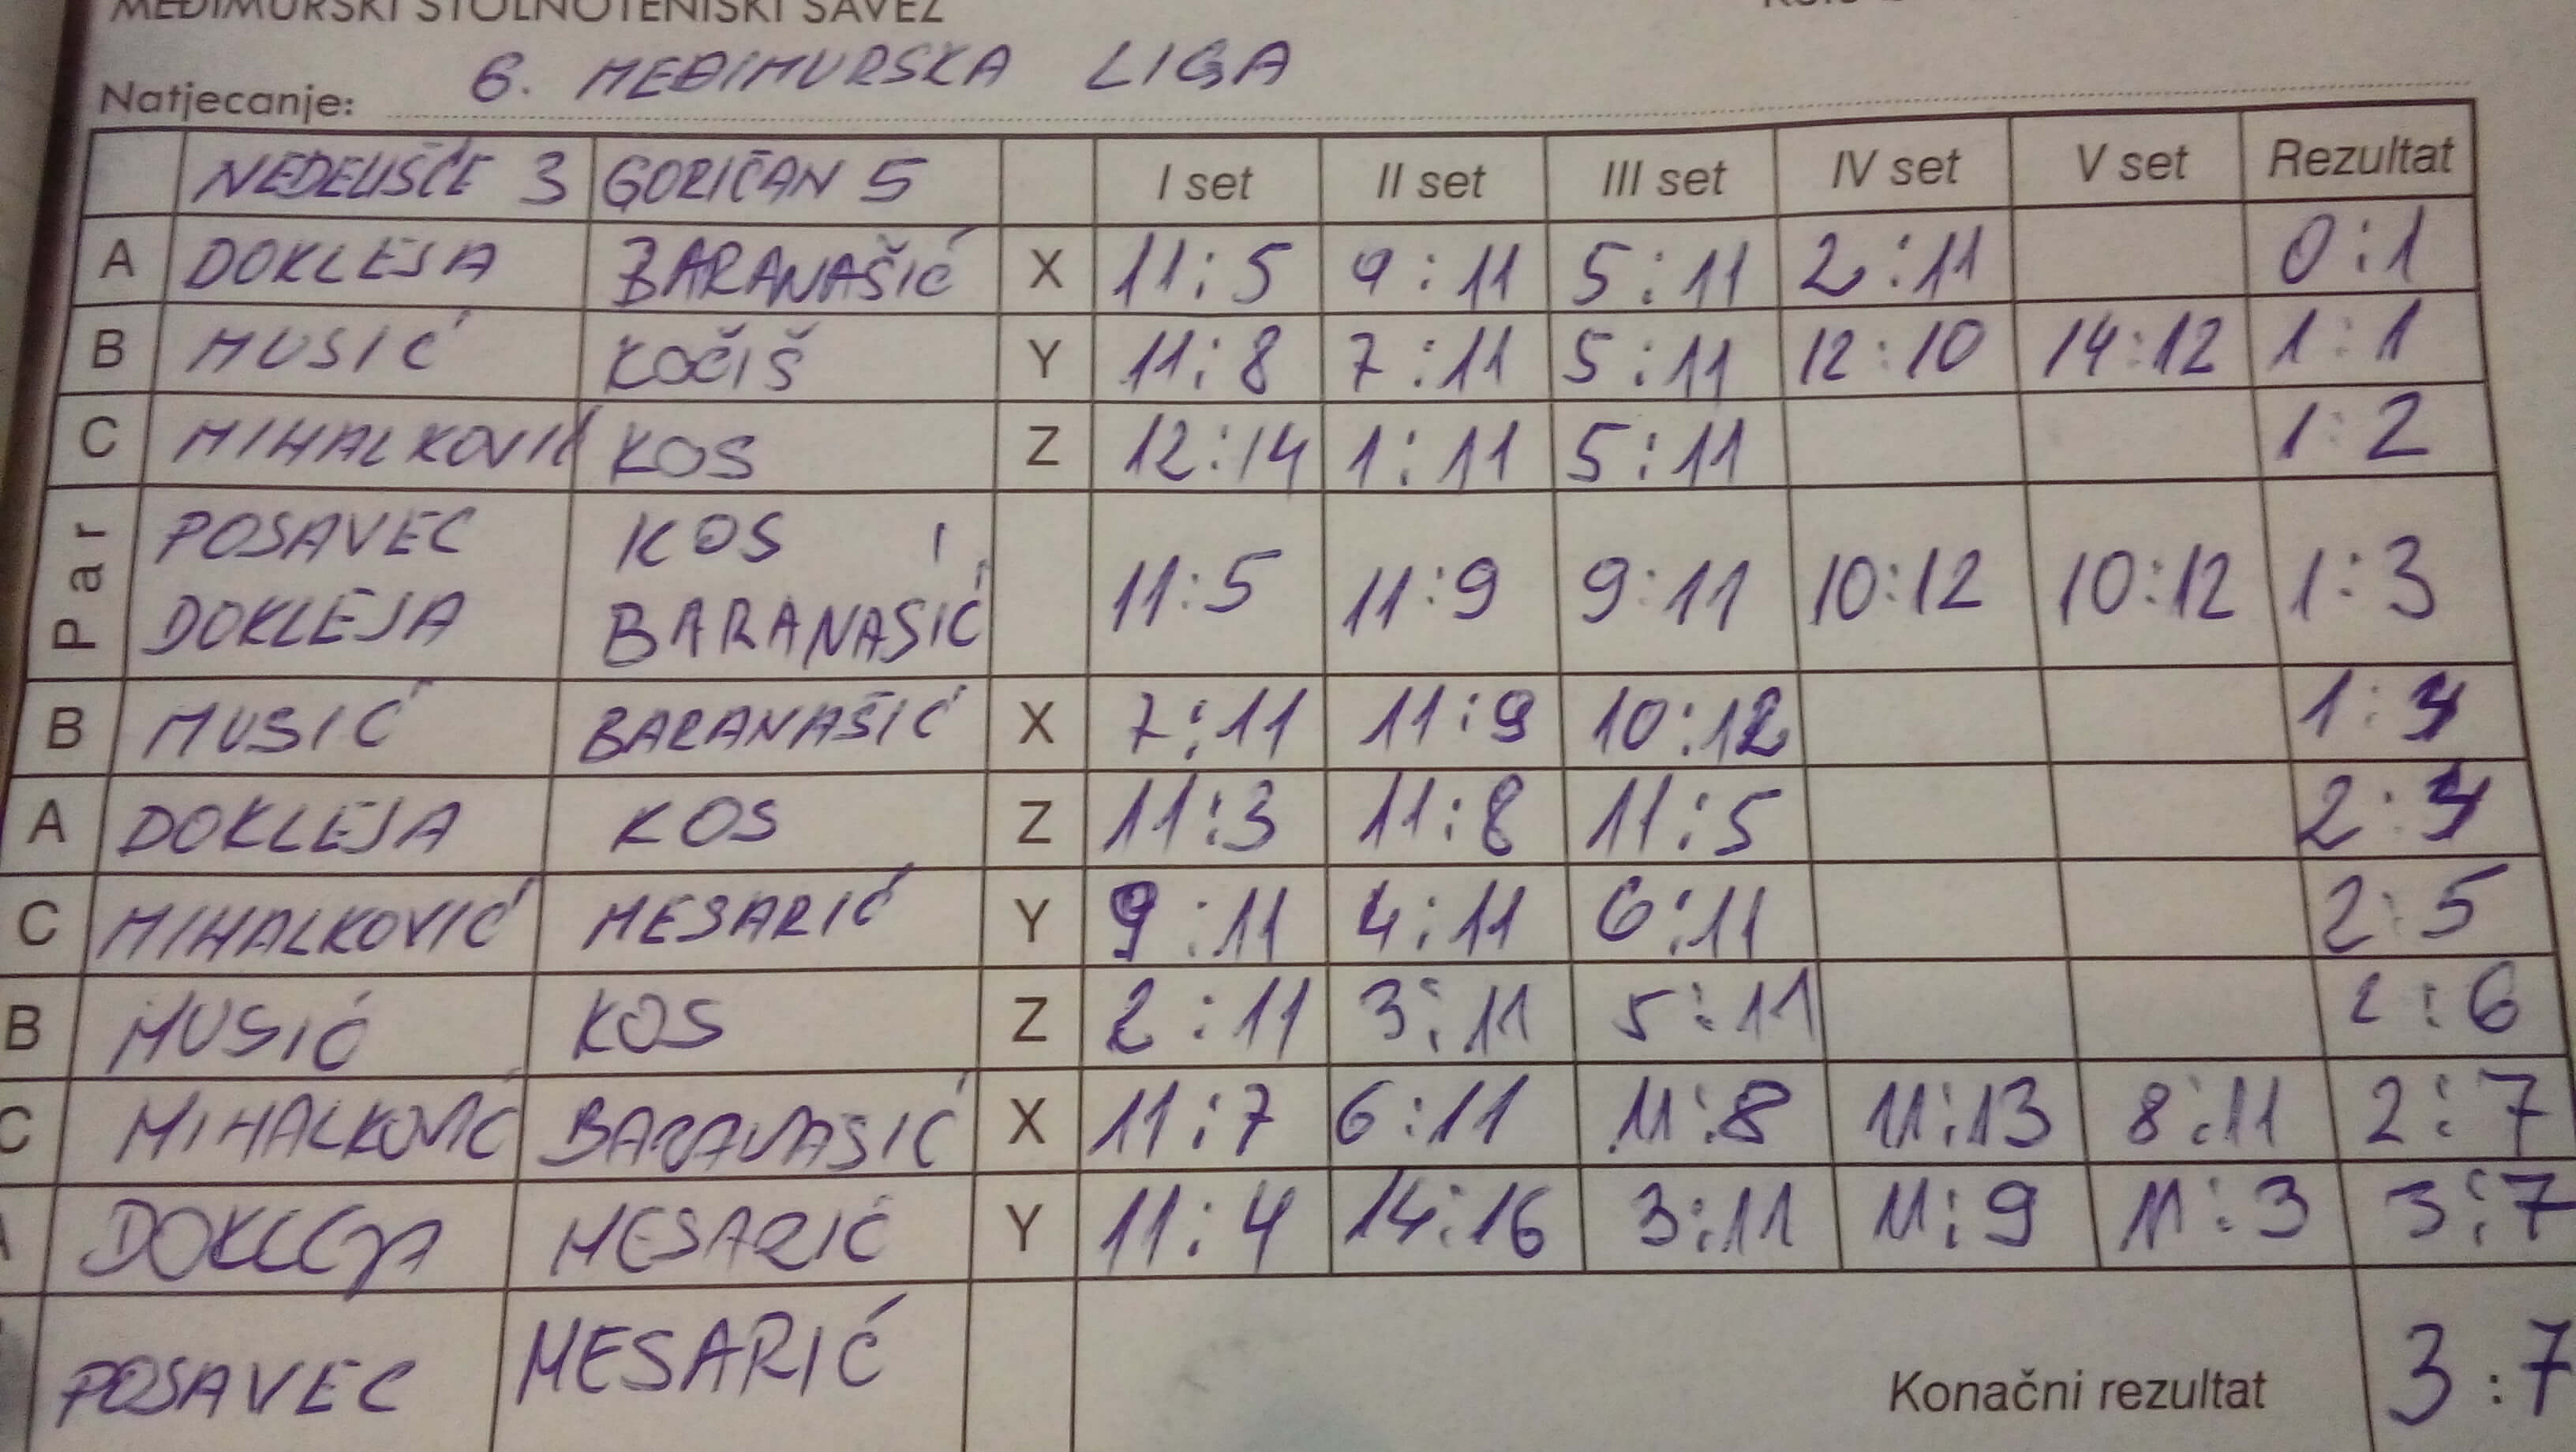 MEĐIMURSKI STOLNOTENISKI SAVEZ
Natjecanje: 6. MEĐIMURSKA LIGA
NEDELIŠĆE 3 GORIČAN 5 I set II set III set IV set V set Rezultat
A DOKLEJA BARANAŠIĆ X 11:5 9:11 5:11 2:11 0:1
B MUSIĆ KOČIŠ Y 11:8 7:11 5:11 12:10 14:12 1:1
C MIHALKOVIĆ KOS Z 12:14 1:11 5:11 1:2
Par POSAVEC KOS
DOKLEJA BARANASIĆ 11:5 11:9 9:11 10:12 10:12 1:3
B MUSIĆ BARANAŠIĆ X 7:11 11:9 10:12 1:4
A DOKLEJA KOS Z 11:3 11:8 11:5 2:4
C MIHALKOVIĆ MESARIĆ Y 9:11 4:11 6:11 2:5
B MUSIĆ KOS Z 2:11 3:11 5:11 2:6
C MIHALKOVIĆ BARANAŠIĆ X 11:7 6:11 11:8 11:13 8:11 2:7
DOKLEJA MESARIĆ Y 11:4 14:16 3:11 11:9 11:3 3:7
POSAVEC MESARIĆ Konačni rezultat 3:7